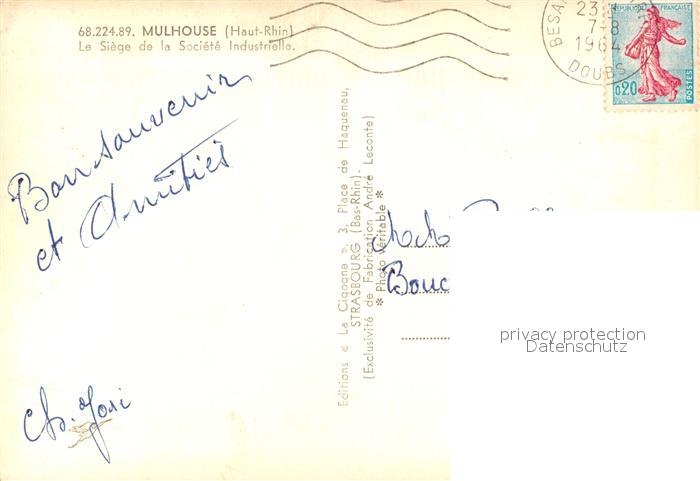 68.224.89. MULHOUSE (Haut-Rhin)
Le Siège de la Société Industrielle.
BESA
23
7-8
1964
DOUBS
RÉPUBLIQUE FRANÇAISE
0,20
POSTES
Bon souvenir
et Amitiés
Editions « La Cigogne », 3, Place de Haguenau,
STRASBOURG (Bas-Rhin).
(Exclusivité de Fabrication André Leconte)
* Photo véritable *
Bouc
privacy protection
Datenschutz